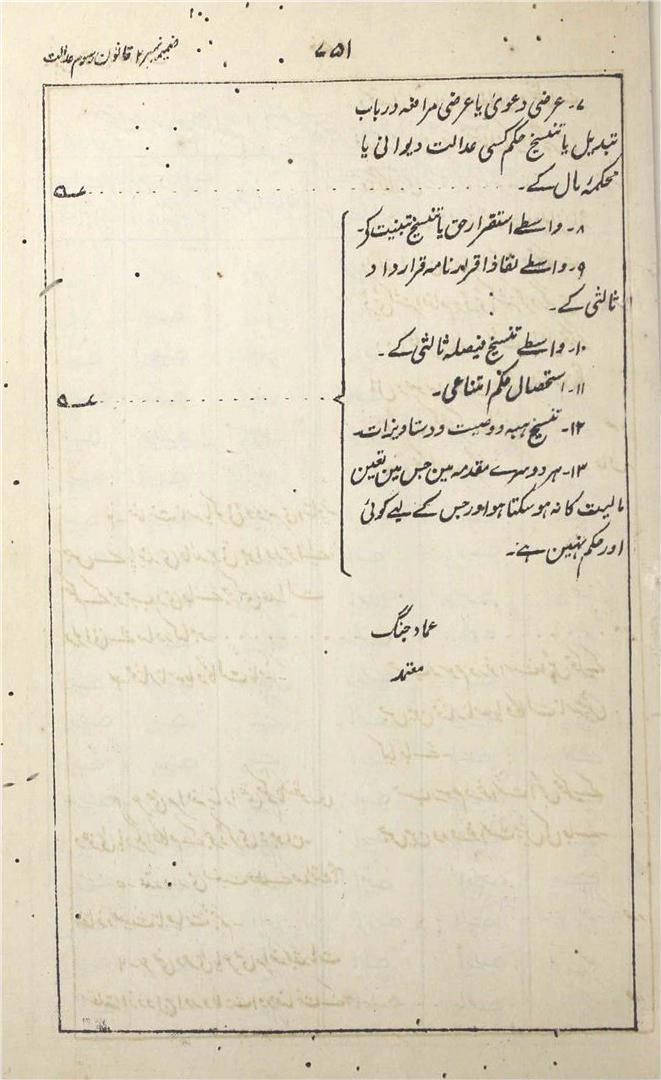 ۷۵۱
ضمیمہ نمبر ۲ قانون رسوم عدالت
۷۔ عرضی دعویٰ یا عرضی مرافعہ در باب
تبدیل یا تنسیخ حکم کسی عدالت دیوانی یا
محکمۂ مال کے۔
۸۔ واسطے استقرار حق یا تنسیخ تبنیت کے۔
۹۔ واسطے نفاذ اقرارنامہ قرارداد
ثالثی کے۔
۱۰۔ واسطے تنسیخ فیصلہ ثالثی کے۔
۱۱۔ استحصال حکم امتناعی۔
۱۲۔ تنسیخ ہبہ و وصیت و دستاویزات۔
۱۳۔ ہر دوسرے مقدمہ مین جس مین تعین
مالیت کا نہ ہو سکتا ہو اور جس کے لیے کوئی
اور حکم نہین ہے۔
عماد جنگ
معتمد